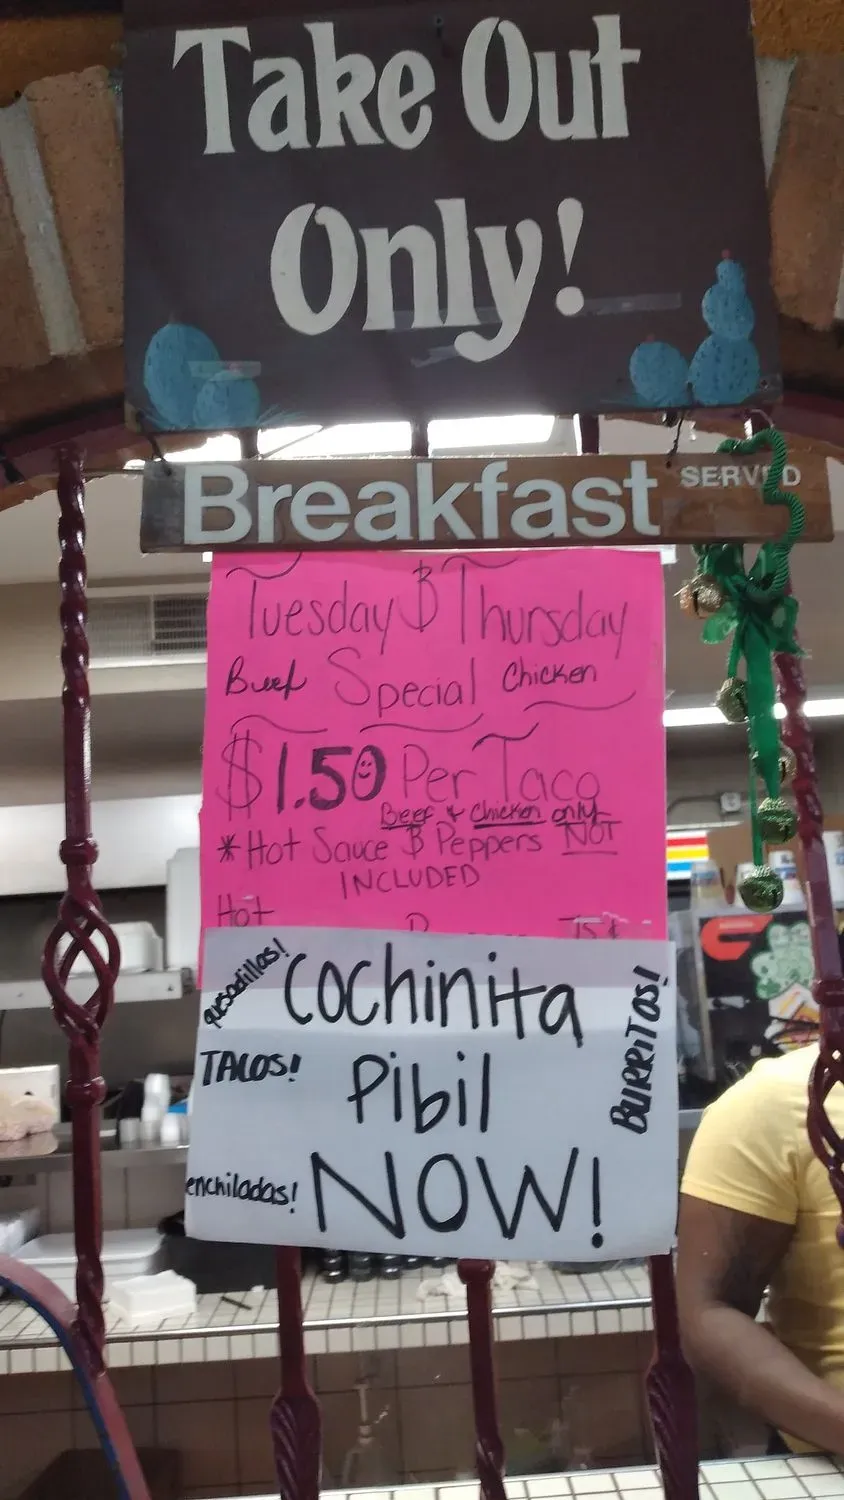 Take Out
Only!
Breakfast SERVED
Tuesday & Thursday
Beef Special Chicken
$1.50 Per Taco
Beef & Chicken only
*Hot Sauce & Peppers NOT
INCLUDED
Hot 75¢
quesadillas!
Cochinita
TACOS!
Pibil
BURRITOS!
enchiladas!
NOW!